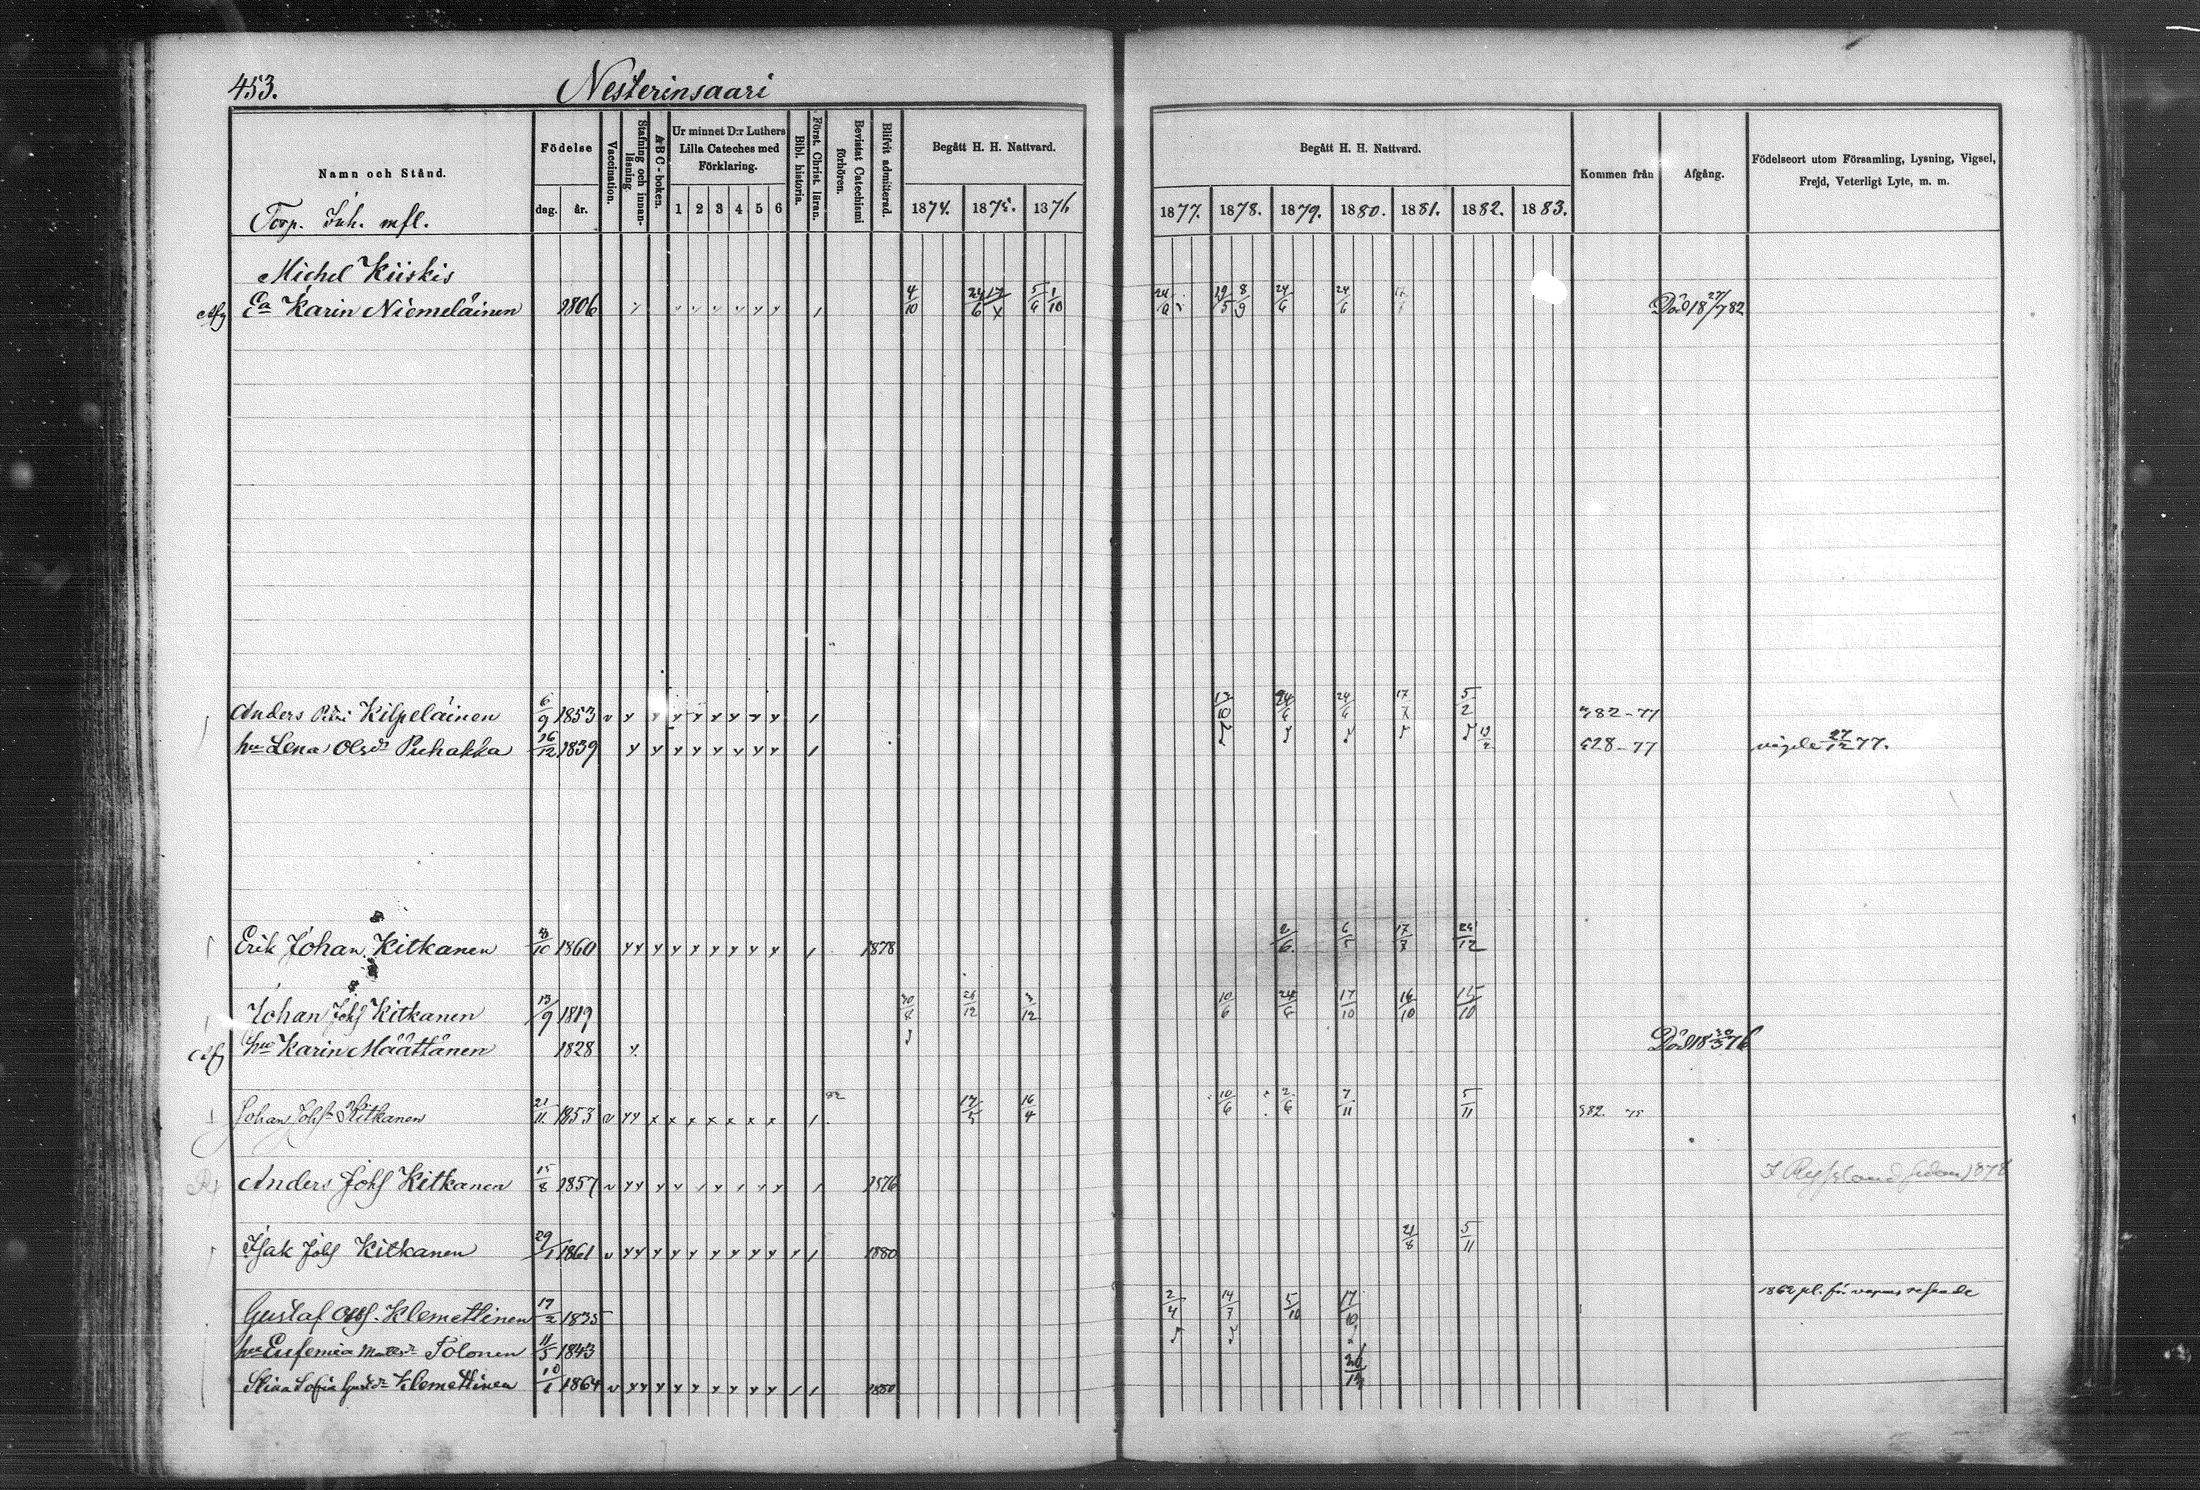 453. Nesterinsaari
Namn och Stånd. Födelse dag. år. Vaccination. Stafning och innanläsning. ABC-boken. Ur minnet D:r Luthers Lilla Cateches med Förklaring. 1 2 3 4 5 6 Bibl. historia. Först. Christ. läran. Bevistat Catechismi förhören. Blifvit admitterad. Begått H. H. Nattvard. 1874. 1875. 1876 Begått H. H. Nattvard. 1877. 1878. 1879. 1880. 1881. 1882. 1883. Kommen från Afgång. Födelseort utom Församling, Lysning, Vigsel, Frejd, Veterligt Lyte, m. m.
Torp. Inh. mfl.
Michel Kiiskis
Afg Ea Karin Niemeläinen 1806 4/10 24/6 5/6 1/10 24/6 19/5 8/9 24/6 24/6 Död 18 27/7 82
Anders Kilpeläinen 6/9 1853 24/6 24/6 17/7 5/2 382-77
hu Lena Olsdr Puhakka 16/12 1839 428-77 vigde 27/12 77.
Erik Johan Kitkanen 8/10 1860 1878 2/6 6/5 17/7 22/12
Johan Johs Kitkanen 13/9 1819 30/8 26/12 3/12 10/6 24/6 17/10 16/10 15/10
Afg hu Karin Määttänen 1828 Död 18 76
Johan Johs Kitkanen 21/11 1853 82 17/5 16/4 10/6 2/6 7/11 5/11 382. 75
Anders Johs Kitkanen 15/8 1857 1876 I Ryssland sedan 1878
Isak Johs Kitkanen 29/1 1861 1880 21/8 5/11
Gustaf Klemettinen 17/2 1835 2/4 14/7 5/10 17/10 1862 pl. för
hu Eufemia Mattsdr Tolonen 11/3 1843
Stina Sofia Gustdr Klemettinen 10/1 1864 1880